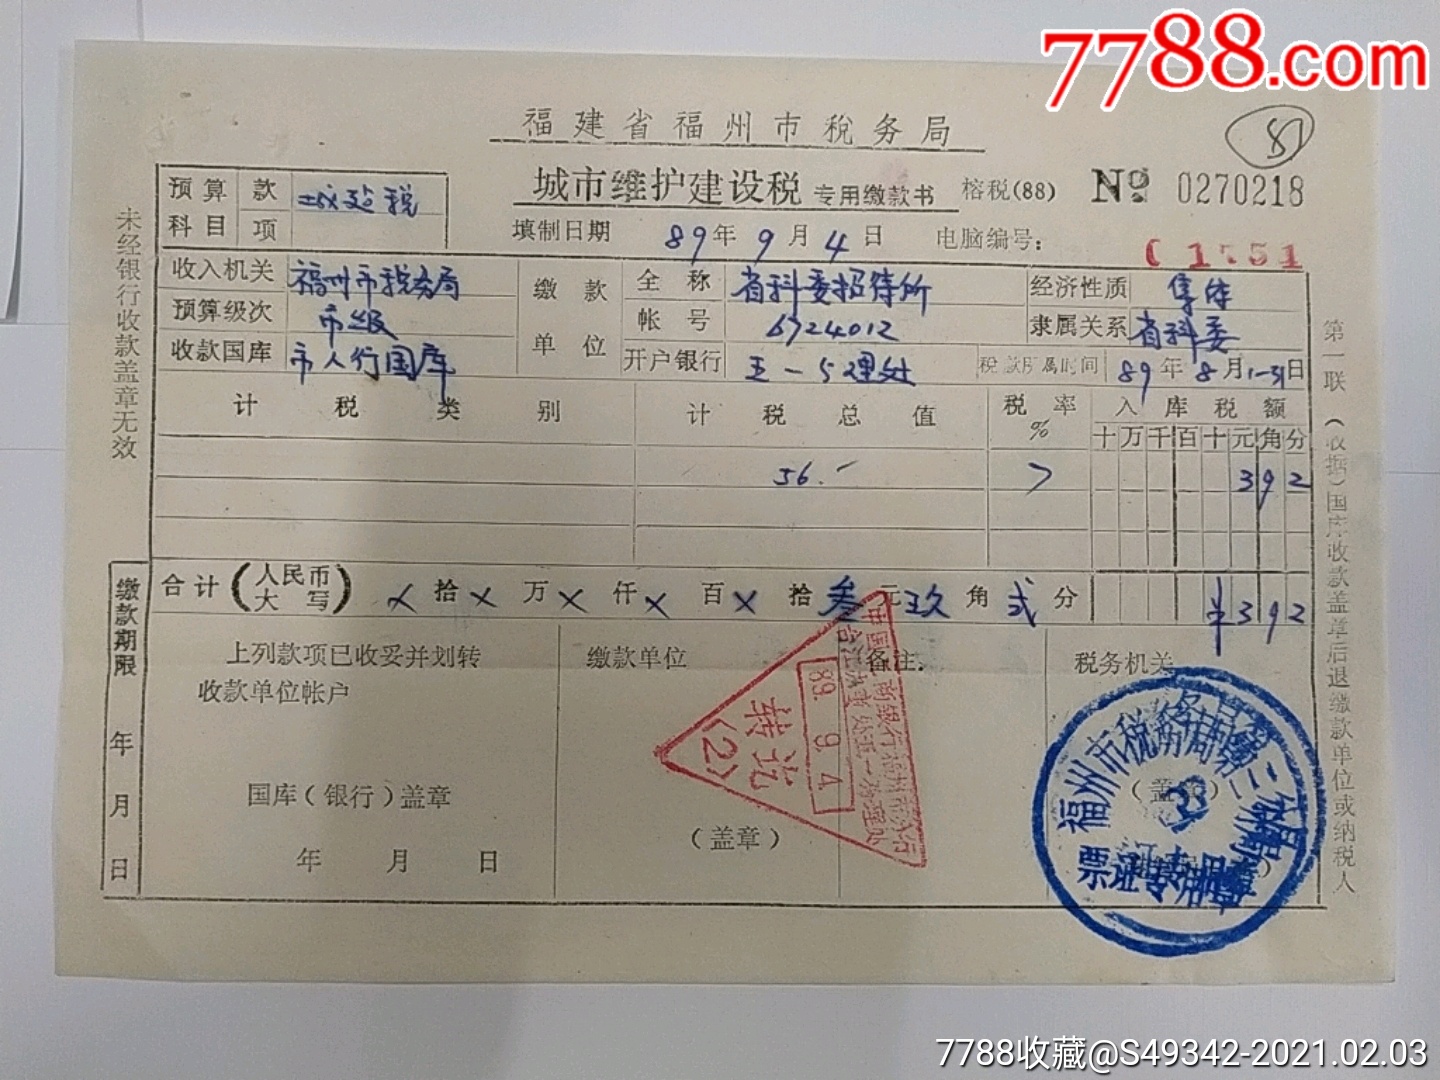 7788.com
福建省福州市税务局
81
城市维护建设税 专用缴款书 榕税(88) № 0270218
预算科目 款 项 城建税
填制日期 89年9月4日 电脑编号:
收入机关 福州市税务局
预算级次 市级
收款国库 市人行国库
缴款单位
全称 省科委招待所
帐号 6724012
开户银行 五一办理处
经济性质 集体
隶属关系 省科委
税款所属时间 89年8月1-31日
计税类别 计税总值 税率% 入库税额
十万千百十元角分
56.- 7 3 9 2
合计(人民币大写) ×拾×万×仟×百×拾叁元玖角贰分 ¥3 9 2
上列款项已收妥并划转
收款单位帐户
国库(银行)盖章
年 月 日
缴款单位
(盖章)
备注:
税务机关
(盖章)
89. 9. 4
转讫
(2)
福州市税务局第二分局
票证专用章
未经银行收款盖章无效
缴款期限 年 月 日
第一联(收据)国库收款盖章后退缴款单位或纳税人
7788收藏@S49342-2021.02.03